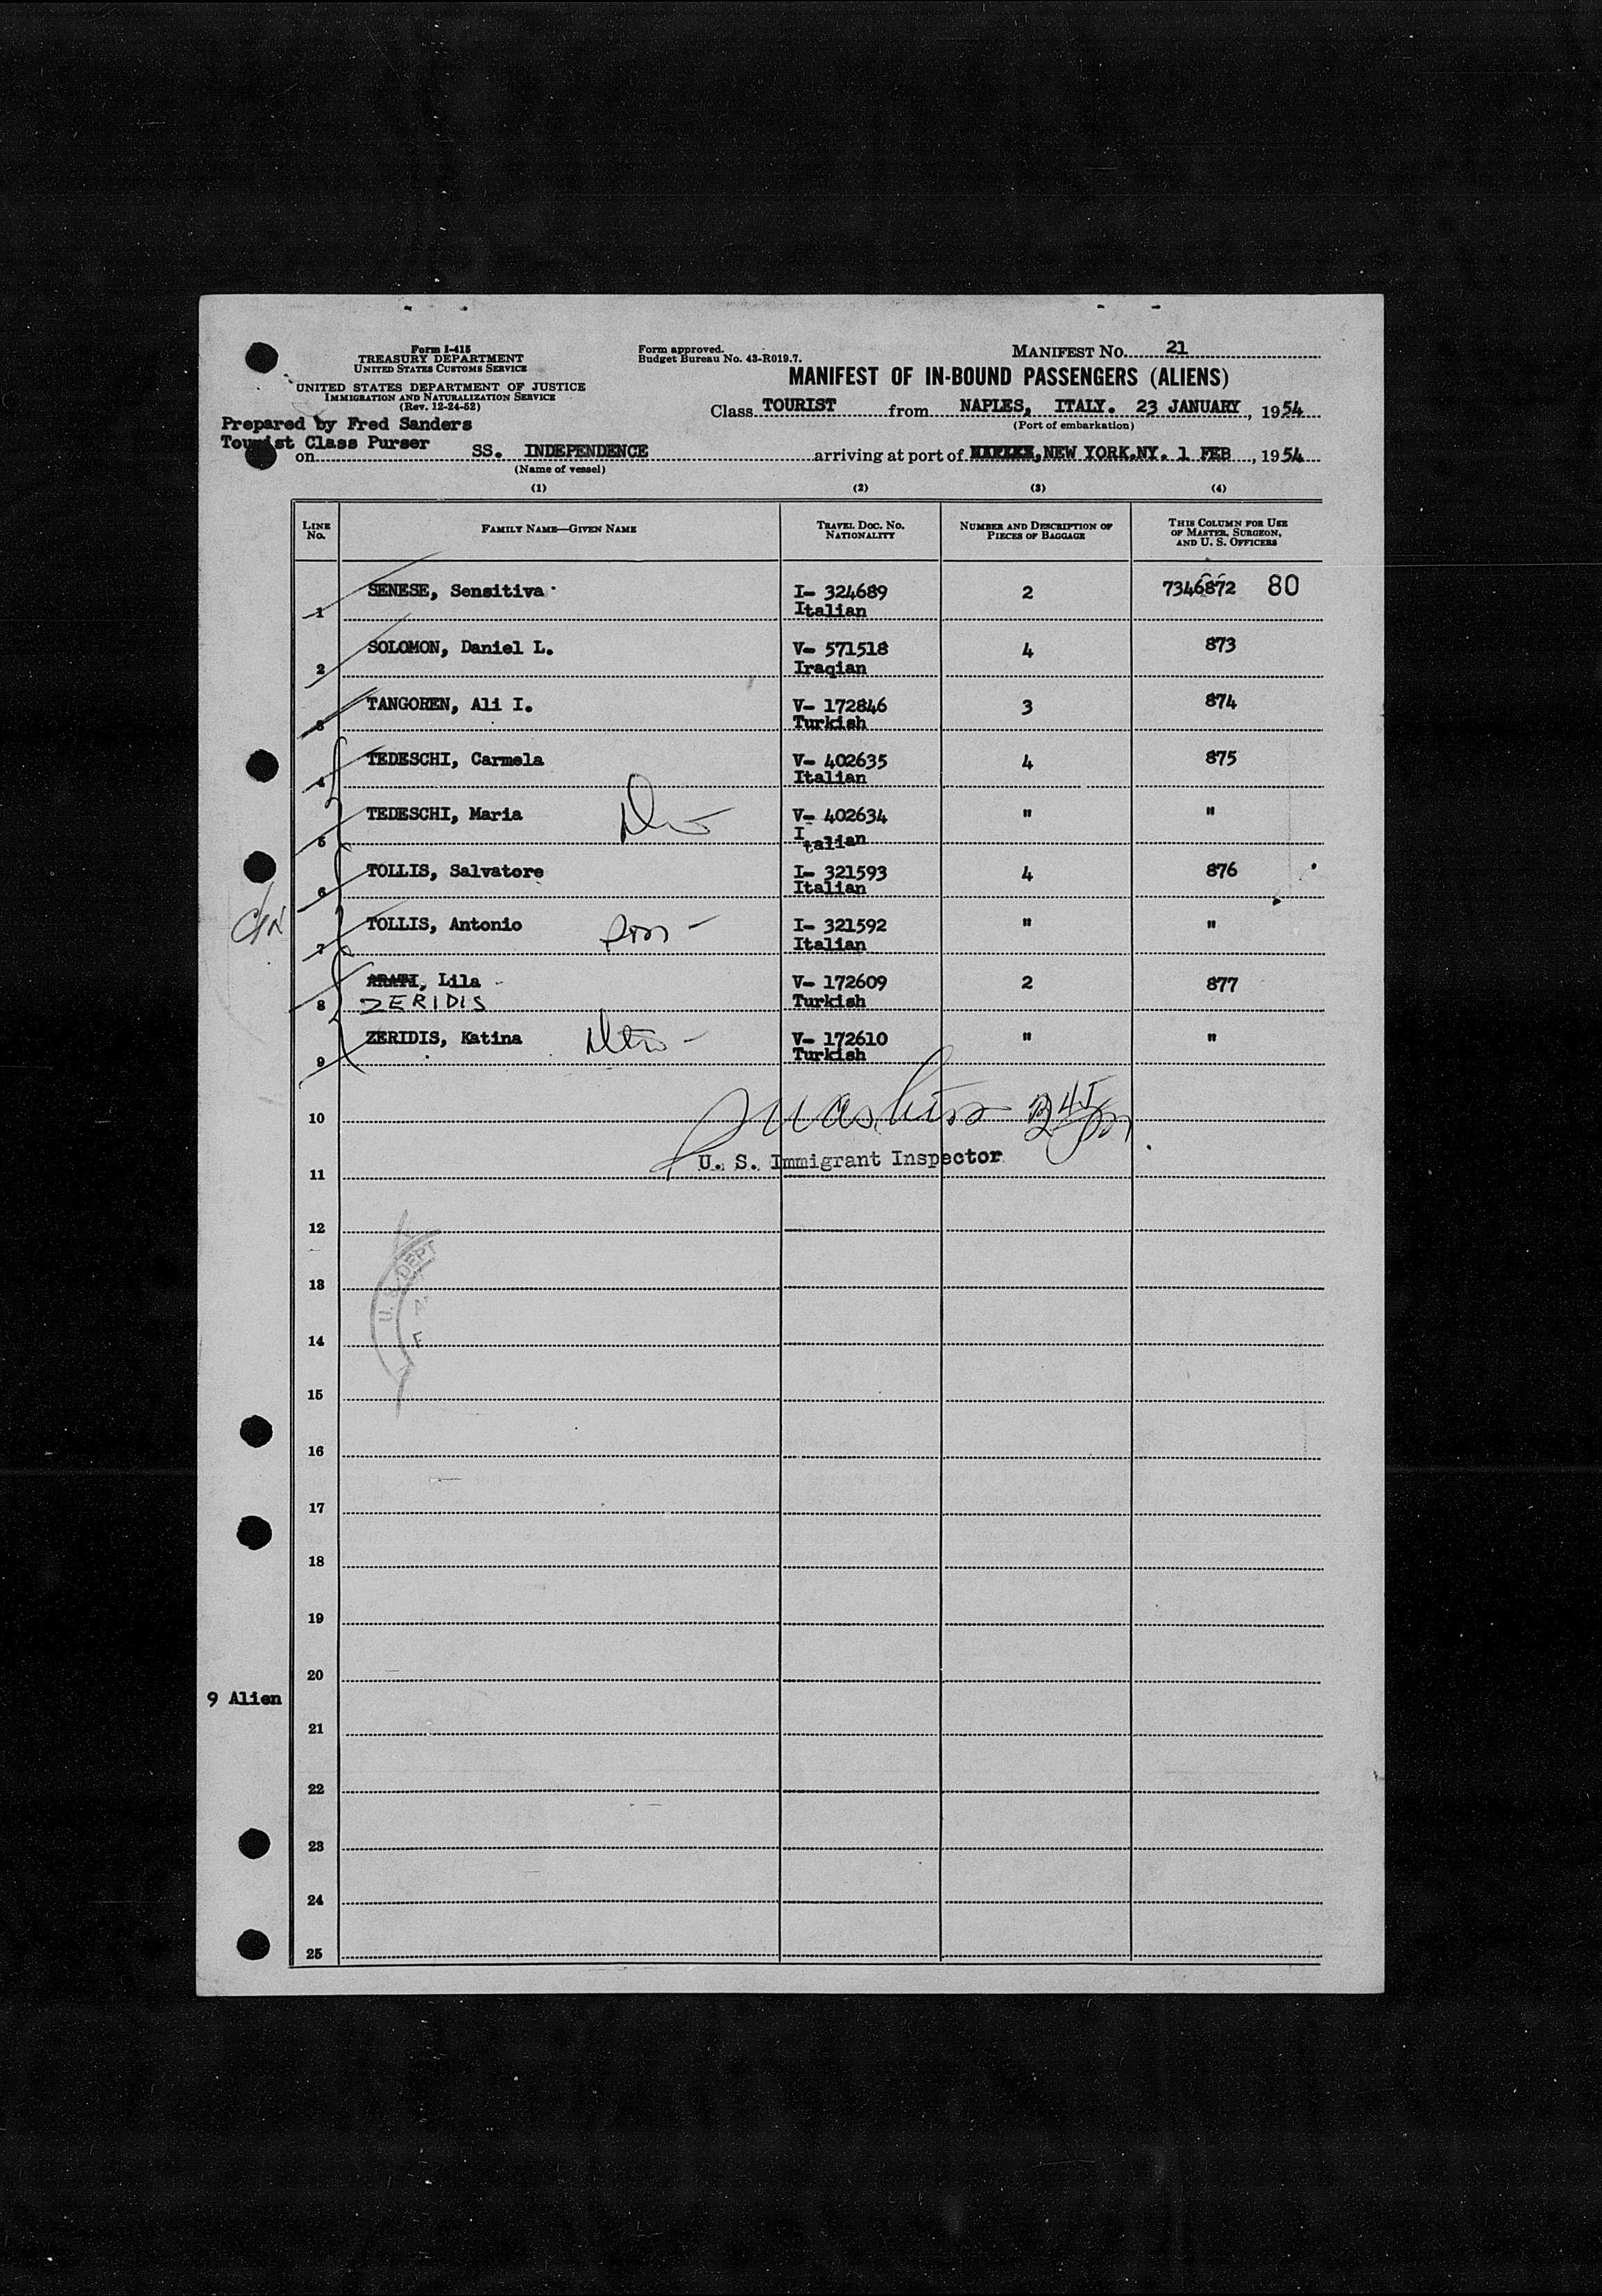 Form I-415
TREASURY DEPARTMENT
UNITED STATES CUSTOMS SERVICE
UNITED STATES DEPARTMENT OF JUSTICE
IMMIGRATION AND NATURALIZATION SERVICE
(Rev. 12-24-52)
Form approved.
Budget Bureau No. 43-R019.7.
MANIFEST NO. 21
MANIFEST OF IN-BOUND PASSENGERS (ALIENS)
Prepared by Fred Sanders
Tourist Class Purser
Class TOURIST from NAPLES, ITALY. 23 JANUARY, 1954
(Port of embarkation)
on SS. INDEPENDENCE arriving at port of NEW YORK.NY. 1 FEB, 1954
(Name of vessel)
(1) (2) (3) (4)
LINE NO. FAMILY NAME—GIVEN NAME TRAVEL DOC. NO. NATIONALITY NUMBER AND DESCRIPTION OF PIECES OF BAGGAGE THIS COLUMN FOR USE OF MASTER, SURGEON, AND U. S. OFFICERS
1 SENESE, Sensitiva I- 324689 2 7346872 80
Italian
2 SOLOMON, Daniel L. V- 571518 4 873
Iraqian
3 TANGOREN, Ali I. V- 172846 3 874
Turkish
4 TEDESCHI, Carmela V- 402635 4 875
Italian
5 TEDESCHI, Maria V- 402634 " "
Italian
6 TOLLIS, Salvatore I- 321593 4 876
Italian
7 TOLLIS, Antonio son - I- 321592 " "
Italian
8 ARATI, Lila V- 172609 2 877
ZERIDIS Turkish
9 ZERIDIS, Katina V- 172610 " "
Turkish
10
U. S. Immigrant Inspector
11
12
U. S. DEPT
13
14
15
16
17
18
19
20
9 Alien
21
22
23
24
25